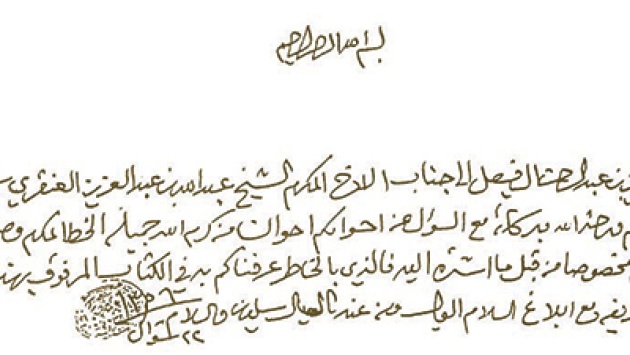 بسم الله الرحمن الرحيم
بن عبدالرحمن ال فيصل الى جناب الاخ المكرم الشيخ عبدالله بن عبدالعزيز العنقري
ورحمة الله وبركاته مع السؤال عن احوالكم احوالنا من كرم الله جميله الخط المكرم وصل
مخصوصا من قبل ما اشرتم اليه فالذي بالخاطر عرفناكم به في الكتاب المرفوق
مع ابلاغ السلام العيال ومن عندنا العيال سالمين والسلام
٢٢ شوال